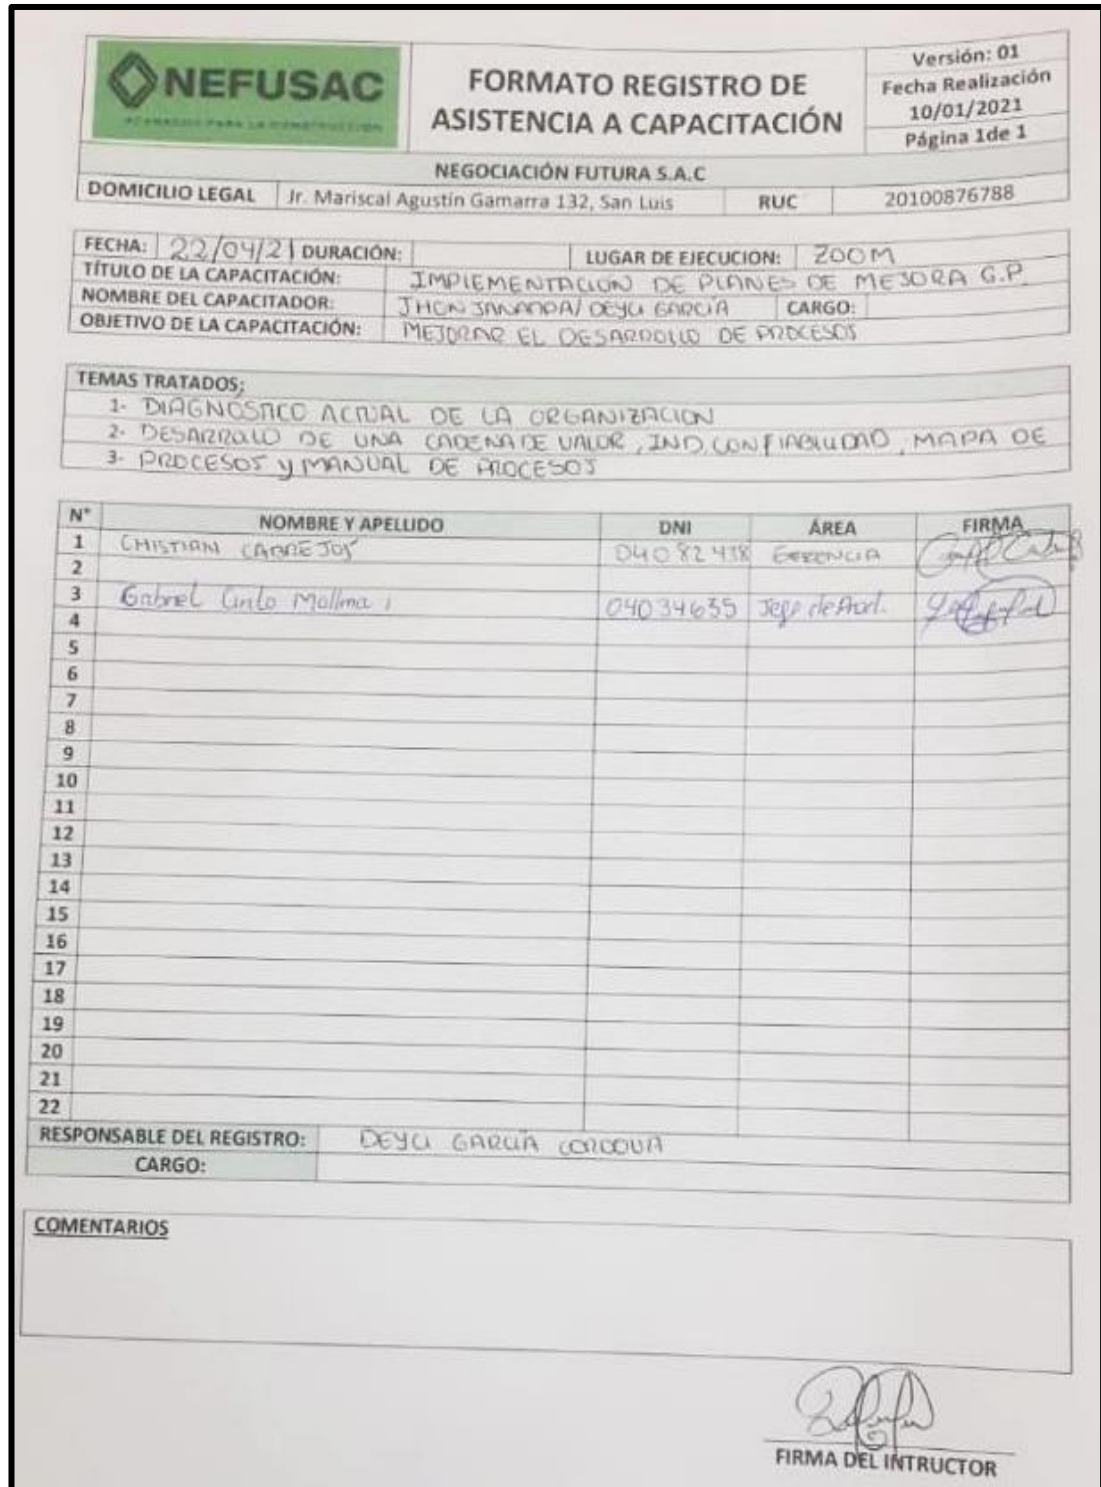 NEFUSAC
ACABADOS PARA LA CONSTRUCCIÓN
FORMATO REGISTRO DE
ASISTENCIA A CAPACITACIÓN
Versión: 01
Fecha Realización
10/01/2021
Página 1de 1
NEGOCIACIÓN FUTURA S.A.C
DOMICILIO LEGAL Jr. Mariscal Agustín Gamarra 132, San Luis RUC 20100876788
FECHA: 22/04/21 DURACIÓN: LUGAR DE EJECUCION: ZOOM
TÍTULO DE LA CAPACITACIÓN: IMPLEMENTACIÓN DE PLANES DE MEJORA G.P.
NOMBRE DEL CAPACITADOR: JHON / DEYCI GARCÍA CARGO:
OBJETIVO DE LA CAPACITACIÓN: MEJORAR EL DESARROLLO DE PROCESOS
TEMAS TRATADOS;
1- DIAGNÓSTICO ACTUAL DE LA ORGANIZACION
2- DESARROLLO DE UNA CADENA DE VALOR, IND. CONFIABILIDAD, MAPA DE
3- PROCESOS y MANUAL DE PROCESOS
N° NOMBRE Y APELLIDO DNI ÁREA FIRMA
1 CHISTIAN CABREJOS 04082438 GERENCIA
2
3 Gabriel Mallma 04034635 Jefe de Prod.
4
5
6
7
8
9
10
11
12
13
14
15
16
17
18
19
20
21
22
RESPONSABLE DEL REGISTRO: DEYCI GARCÍA CORDOVA
CARGO:
COMENTARIOS
FIRMA DEL INTRUCTOR